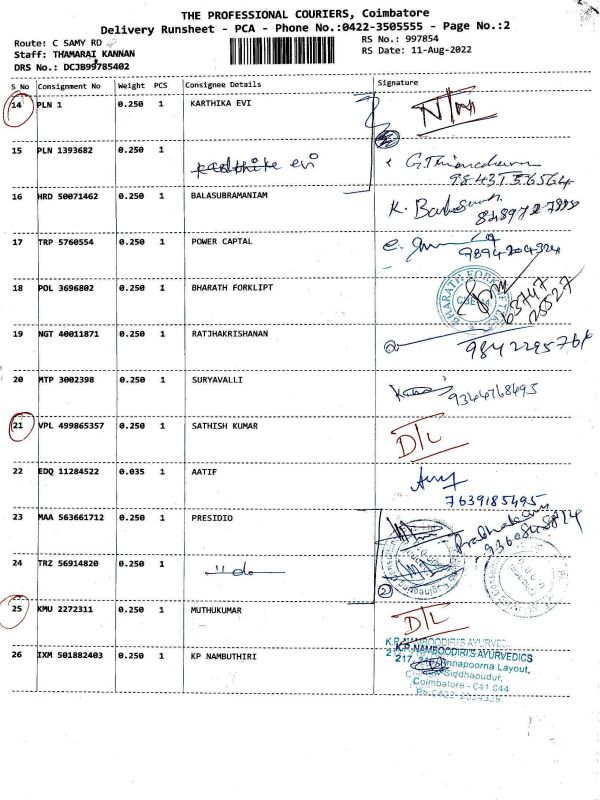 THE PROFESSIONAL COURIERS, Coimbatore
Delivery Runsheet - PCA - Phone No.:0422-3505555 - Page No.:2
Route: C SAMY RD
RS No.: 997854
Staff: THAMARAI KANNAN
RS Date: 11-Aug-2022
DRS No.: DCJB99785402
S No Consignment No Weight PCS Consignee Details Signature
14 PLN 1 0.250 1 KARTHIKA EVI
15 PLN 1393682 0.250 1 karthike evi
9843156564
16 HRD 50071462 0.250 1 BALASUBRAMANIAM K.
17 TRP 5760554 0.250 1 POWER CAPTAL
9894204324
18 POL 3696802 0.250 1 BHARATH FORKLIPT BHARATH FORK
63747
20527
19 NGT 40011871 0.250 1 RATJHAKRISHANAN
20 MTP 3002398 0.250 1 SURYAVALLI 9344768495
21 VPL 499865357 0.250 1 SATHISH KUMAR D/L
22 EDQ 11284522 0.035 1 AATIF
7639185495
23 MAA 563661712 0.250 1 PRESIDIO
24 TRZ 56914820 0.250 1 "do
2
25 KMU 2272311 0.250 1 MUTHUKUMAR D/L
26 IXM 501882403 0.250 1 KP NAMBUTHIRI
K.P. NAMBOODIRI'S AYURVEDICS
217, Annapoorna Layout,
Siddhapudur,
Coimbatore - 641 044